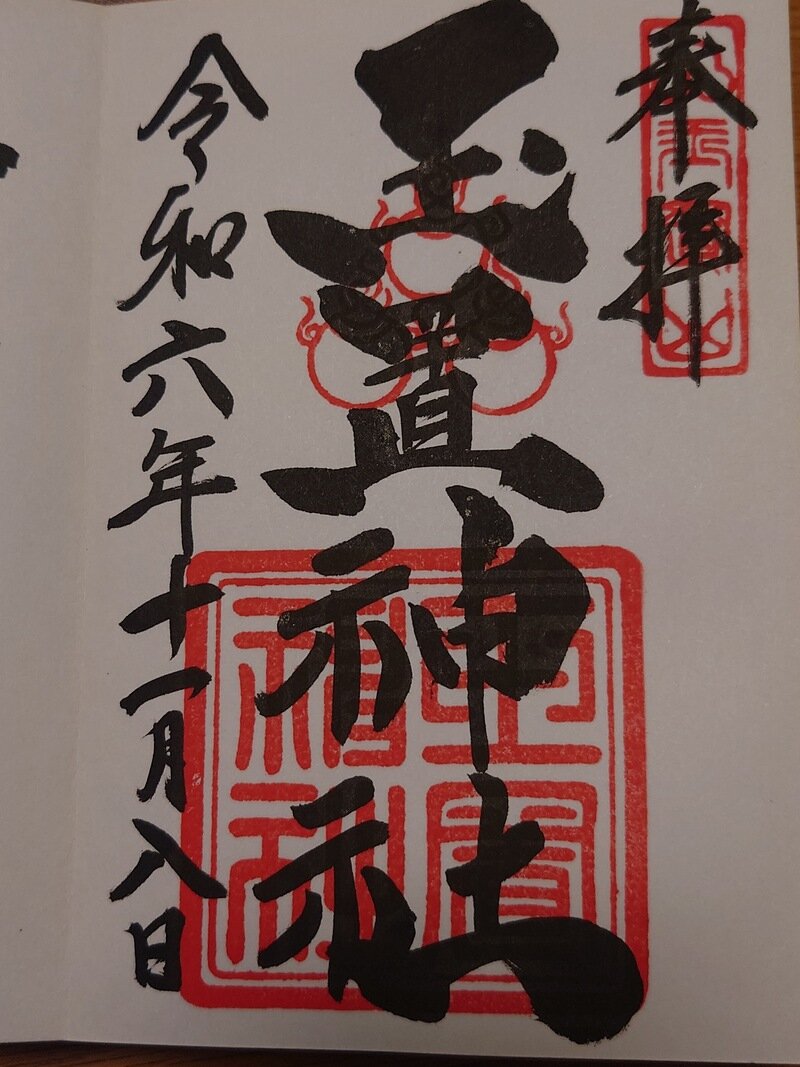 奉拝
玉置神社
令和六年十一月八日
玉置神社